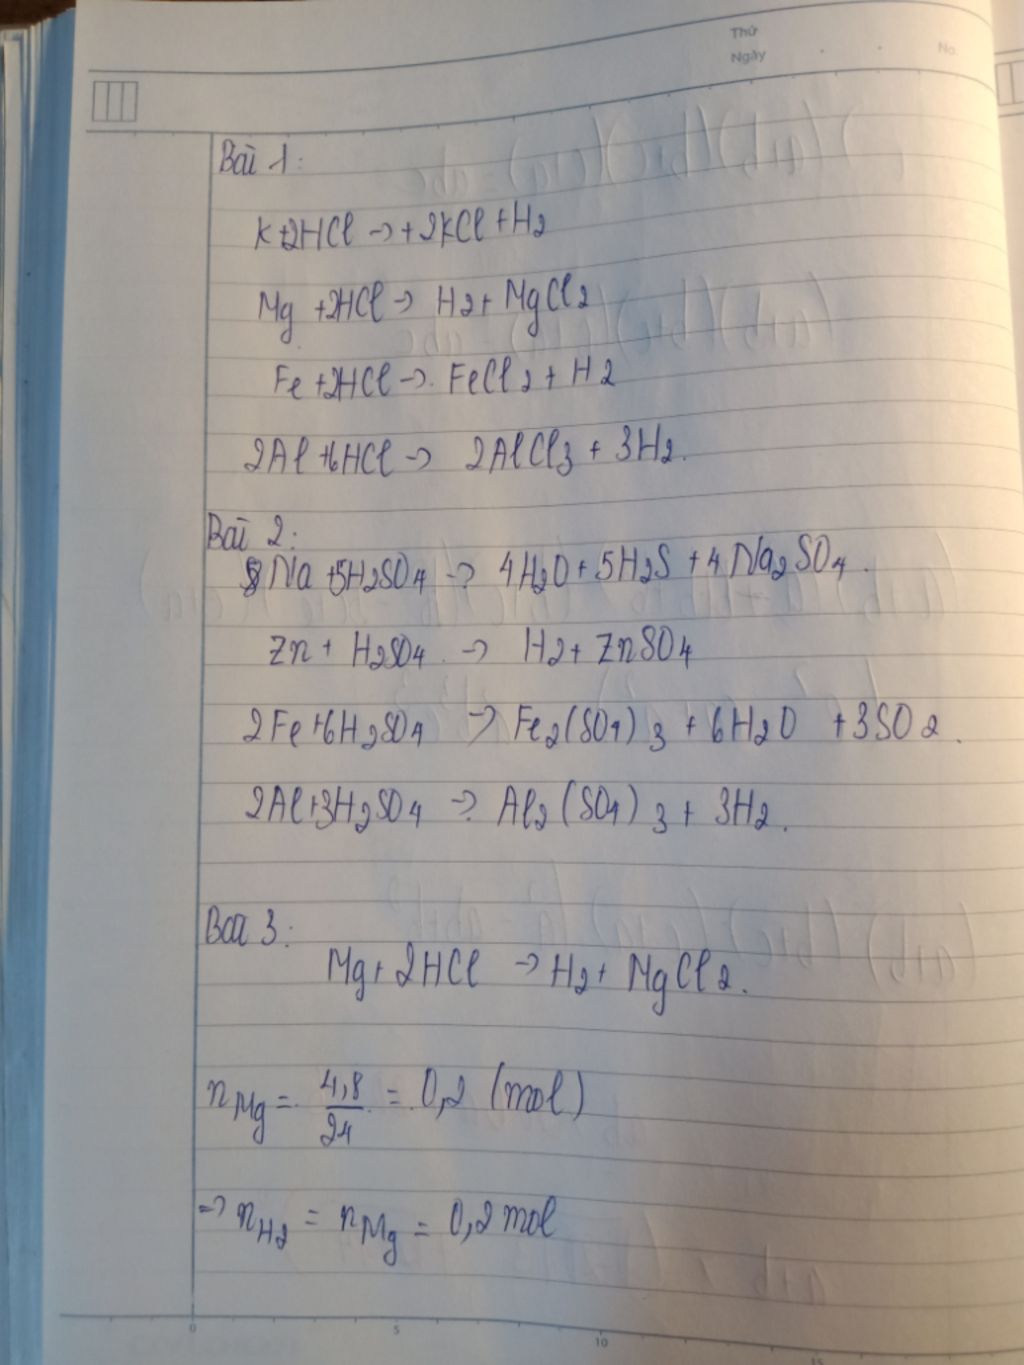 Thứ
Ngày . . No.
Bài 1:
K+2HCl → +2KCl + H2
Mg +2HCl → H2+ MgCl2
Fe+2HCl → FeCl2 + H2
2Al+6HCl → 2AlCl3 + 3H2.
Bài 2:
8Na +5H2SO4 → 4H2O+5H2S +4Na2SO4.
Zn+ H2SO4 → H2+ ZnSO4
2Fe+6H2SO4 → Fe2(SO4)3 + 6H2O +3SO2.
2Al+3H2SO4 → Al2(SO4)3 + 3H2.
Bài 3:
Mg+2HCl → H2+ MgCl2.
nMg = 4,8/24 = 0,2 (mol)
=> nH2 = nMg = 0,2 mol
0 5 10 15